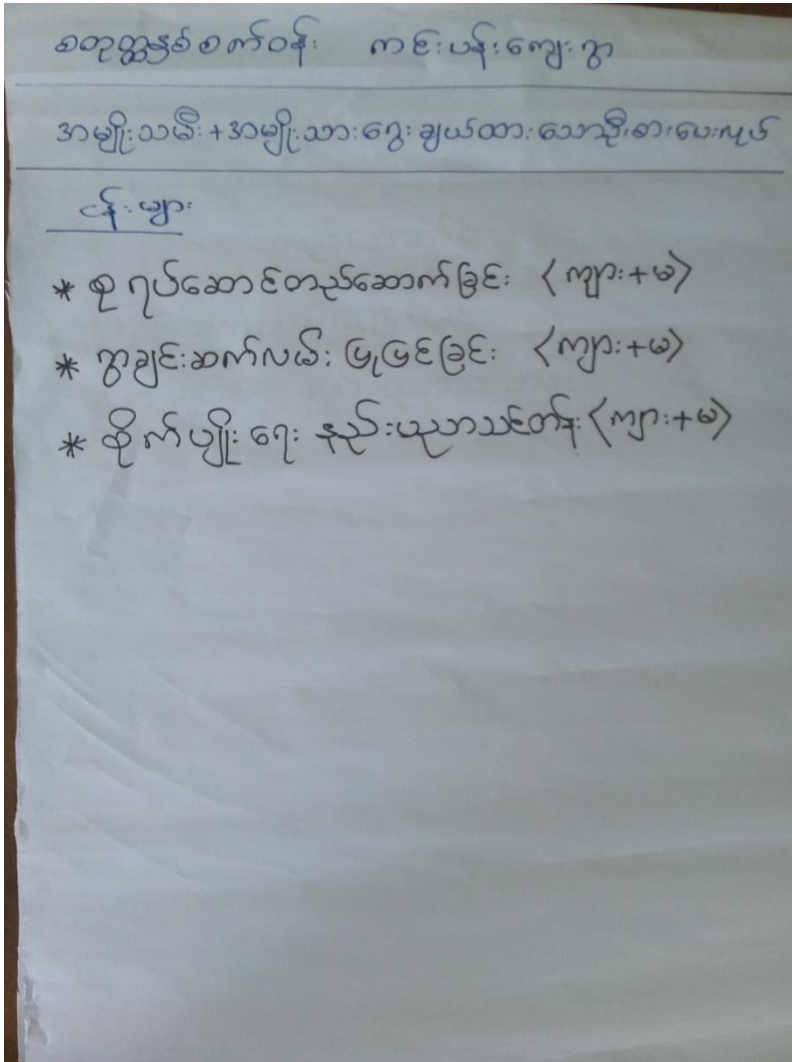 စတုတ္ထနှစ်စက်ဝန်း ကင်းပန်းကျေးရွာ
အမျိုးသမီး+အမျိုးသားရွေးချယ်ထားသောဦးစားပေးလုပ်
ငန်းများ
* စု ရပ်ဆောင်တည်ဆောက်ခြင်း <ကျား+မ>
* ရွာချင်းဆက်လမ်း ပြုပြင်ခြင်း <ကျား+မ>
* စိုက်ပျိုးရေး နည်းပညာသင်တန်း <ကျား+မ>